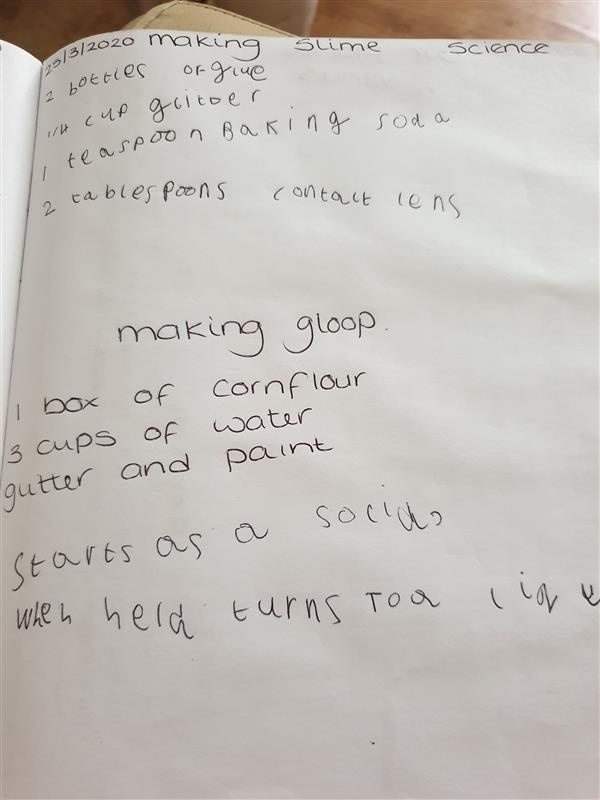 23/3/2020 making slime science
2 bottles of glue
1/4 cup glitter
1 teaspoon Baking soda
2 tablespoons contact lens
making gloop.
1 box of cornflour
3 cups of water
gutter and paint
starts as a socid,
when held turns to a liqu